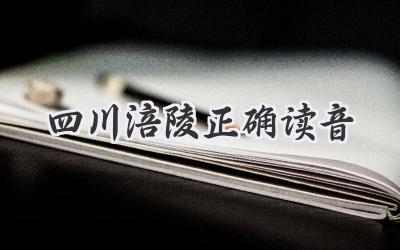 四川涪陵正确读音